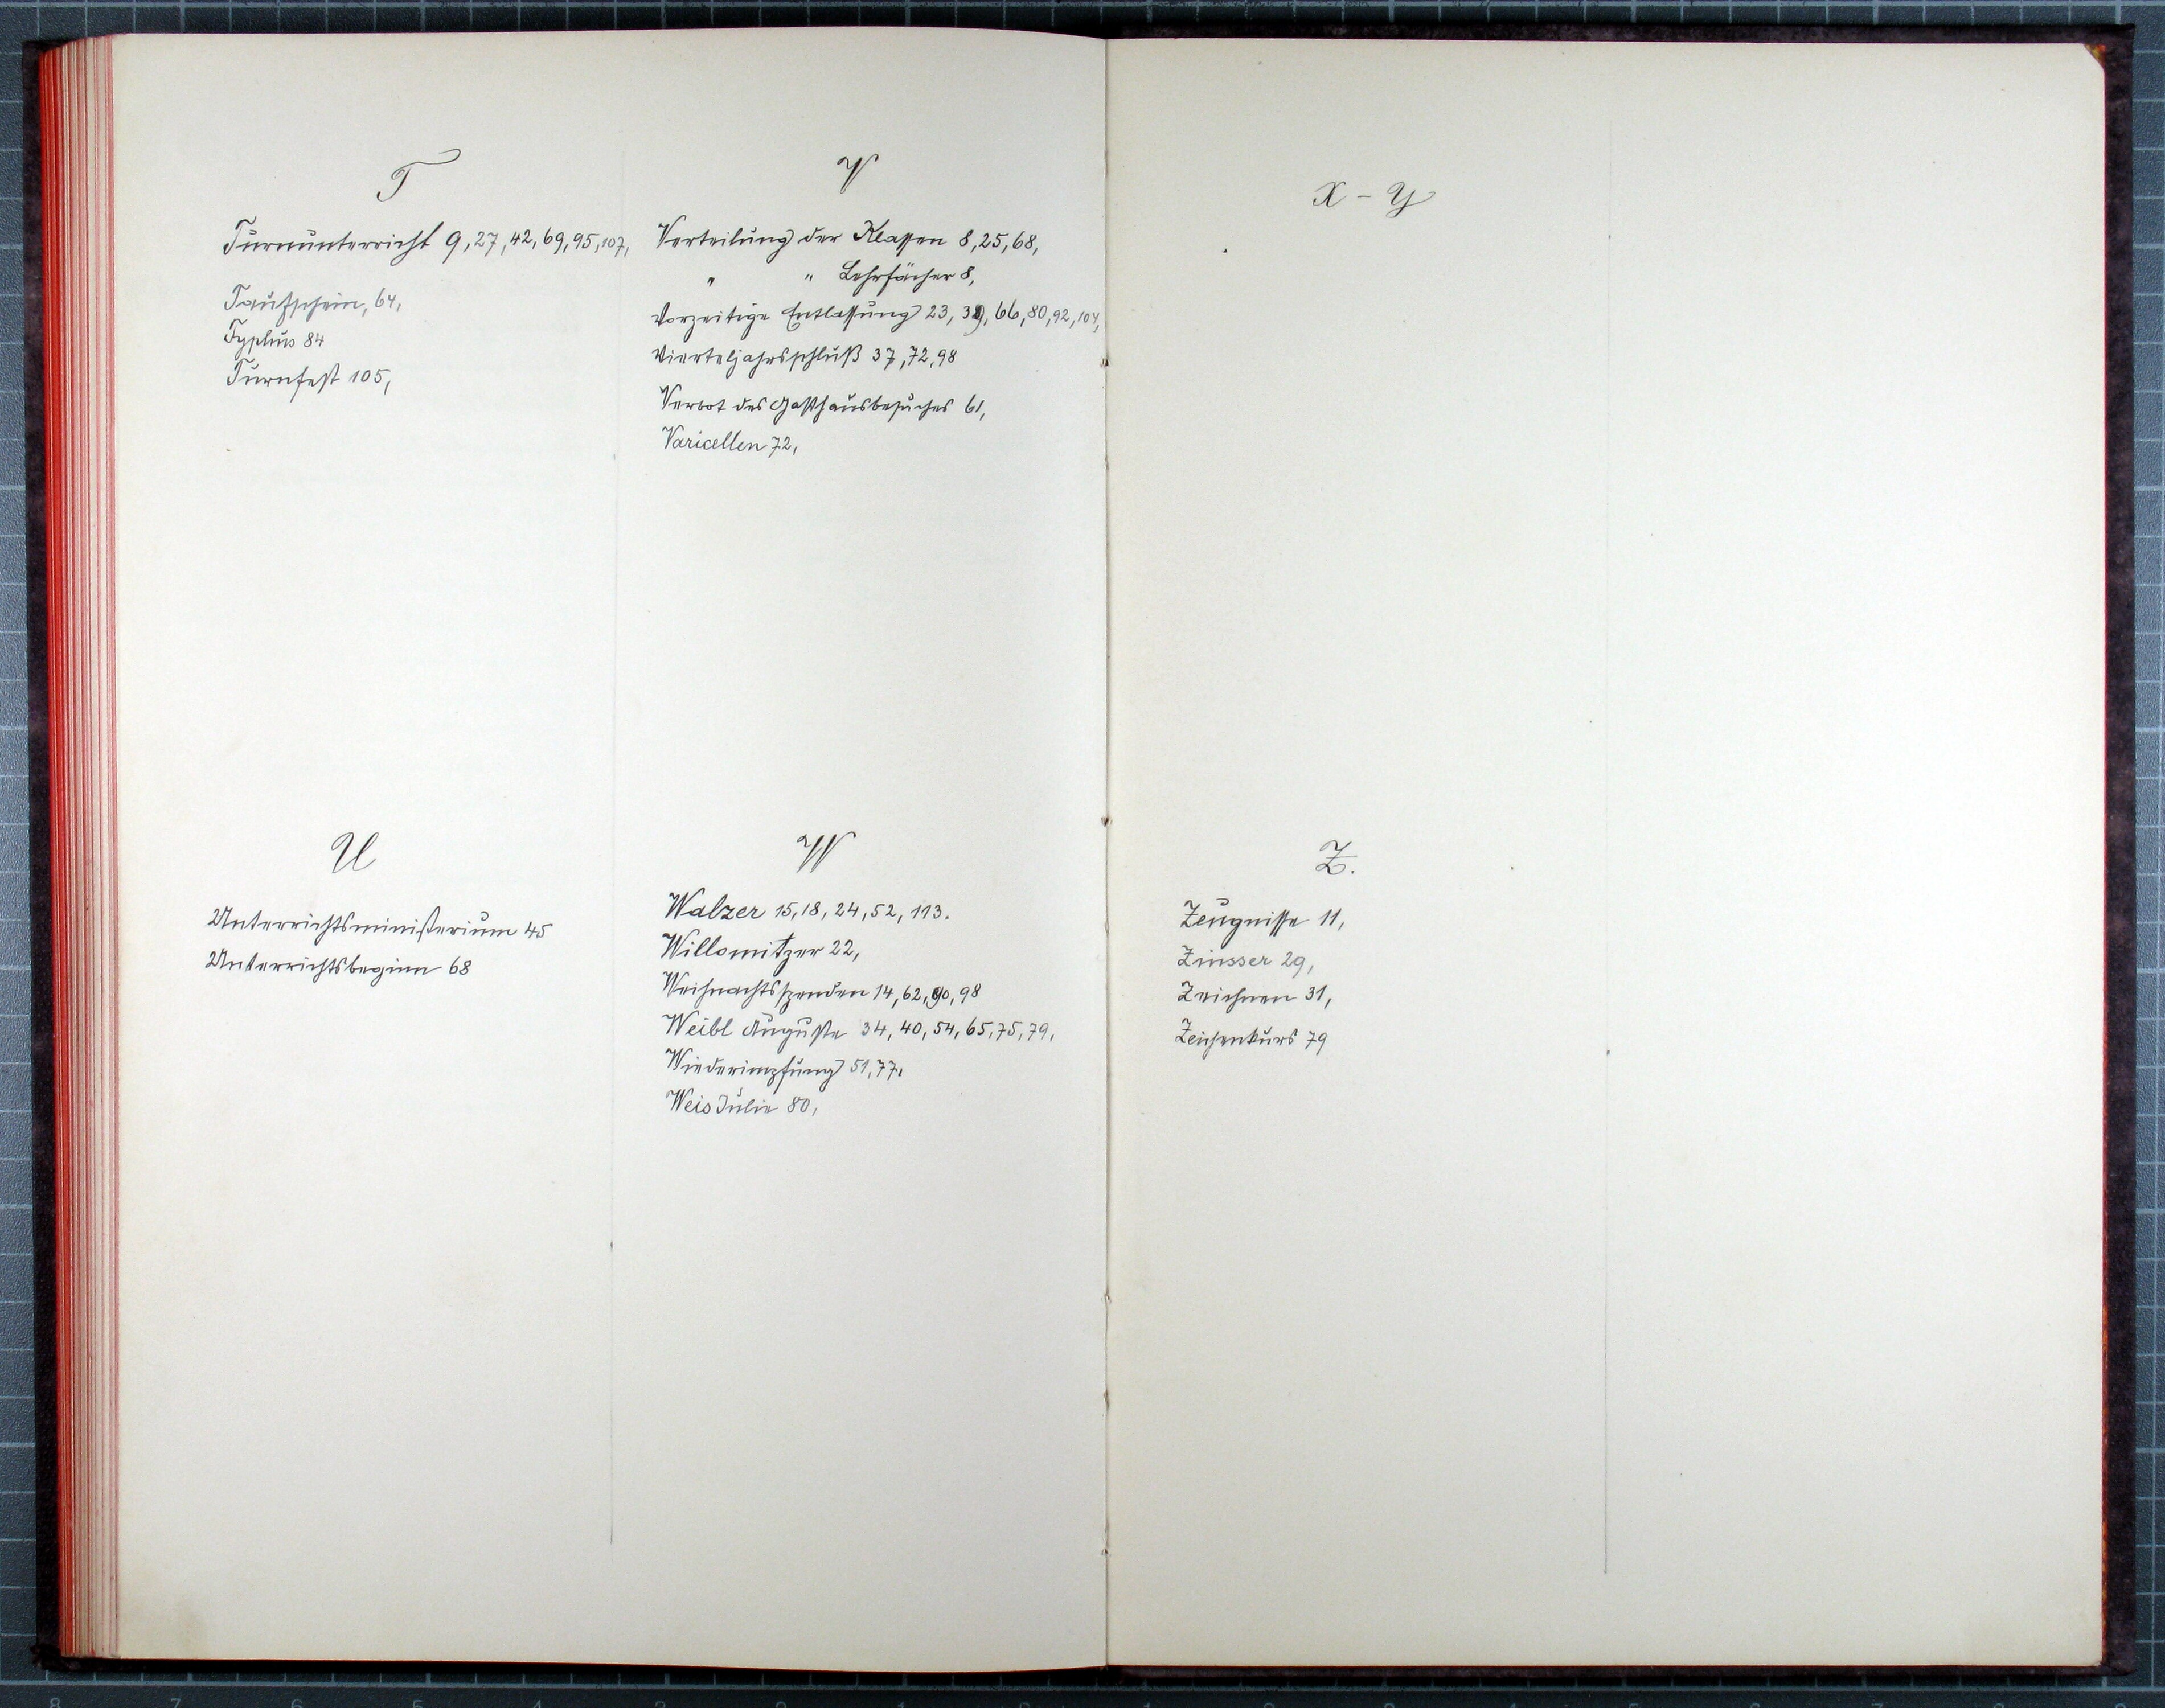 T
Turnunterricht 9, 27, 42, 69, 95, 107,
Taufschein, 64,
Typhus 84
Turnfest 105,
U
Unterrichtsministerium 45
Unterrichtsbeginn 68
V
Verteilung der Klassen 8, 25, 68,
" " Lehrfächer 8,
Vorzeitige Entlassung 23, 39, 66, 80, 92, 104,
Vierteljahrsschluß 37, 72, 98
Verbot des Gasthausbesuches 61,
Varicellen 72,
W
Walzer 15, 18, 24, 52, 113.
Willomitzer 22,
Weihnachtsspenden 14, 62, 90, 98
Weibl Auguste 34, 40, 54, 65, 75, 79,
Wiederimpfung 51, 77.
Weis Julie 80,
X - Y
Z.
Zeugnisse 11,
Zinsser 29,
Zeichnen 31,
Zeichenkurs 79
8 7 6 5 4 3 2 1 0 1 2 3 4 5 6 7 8